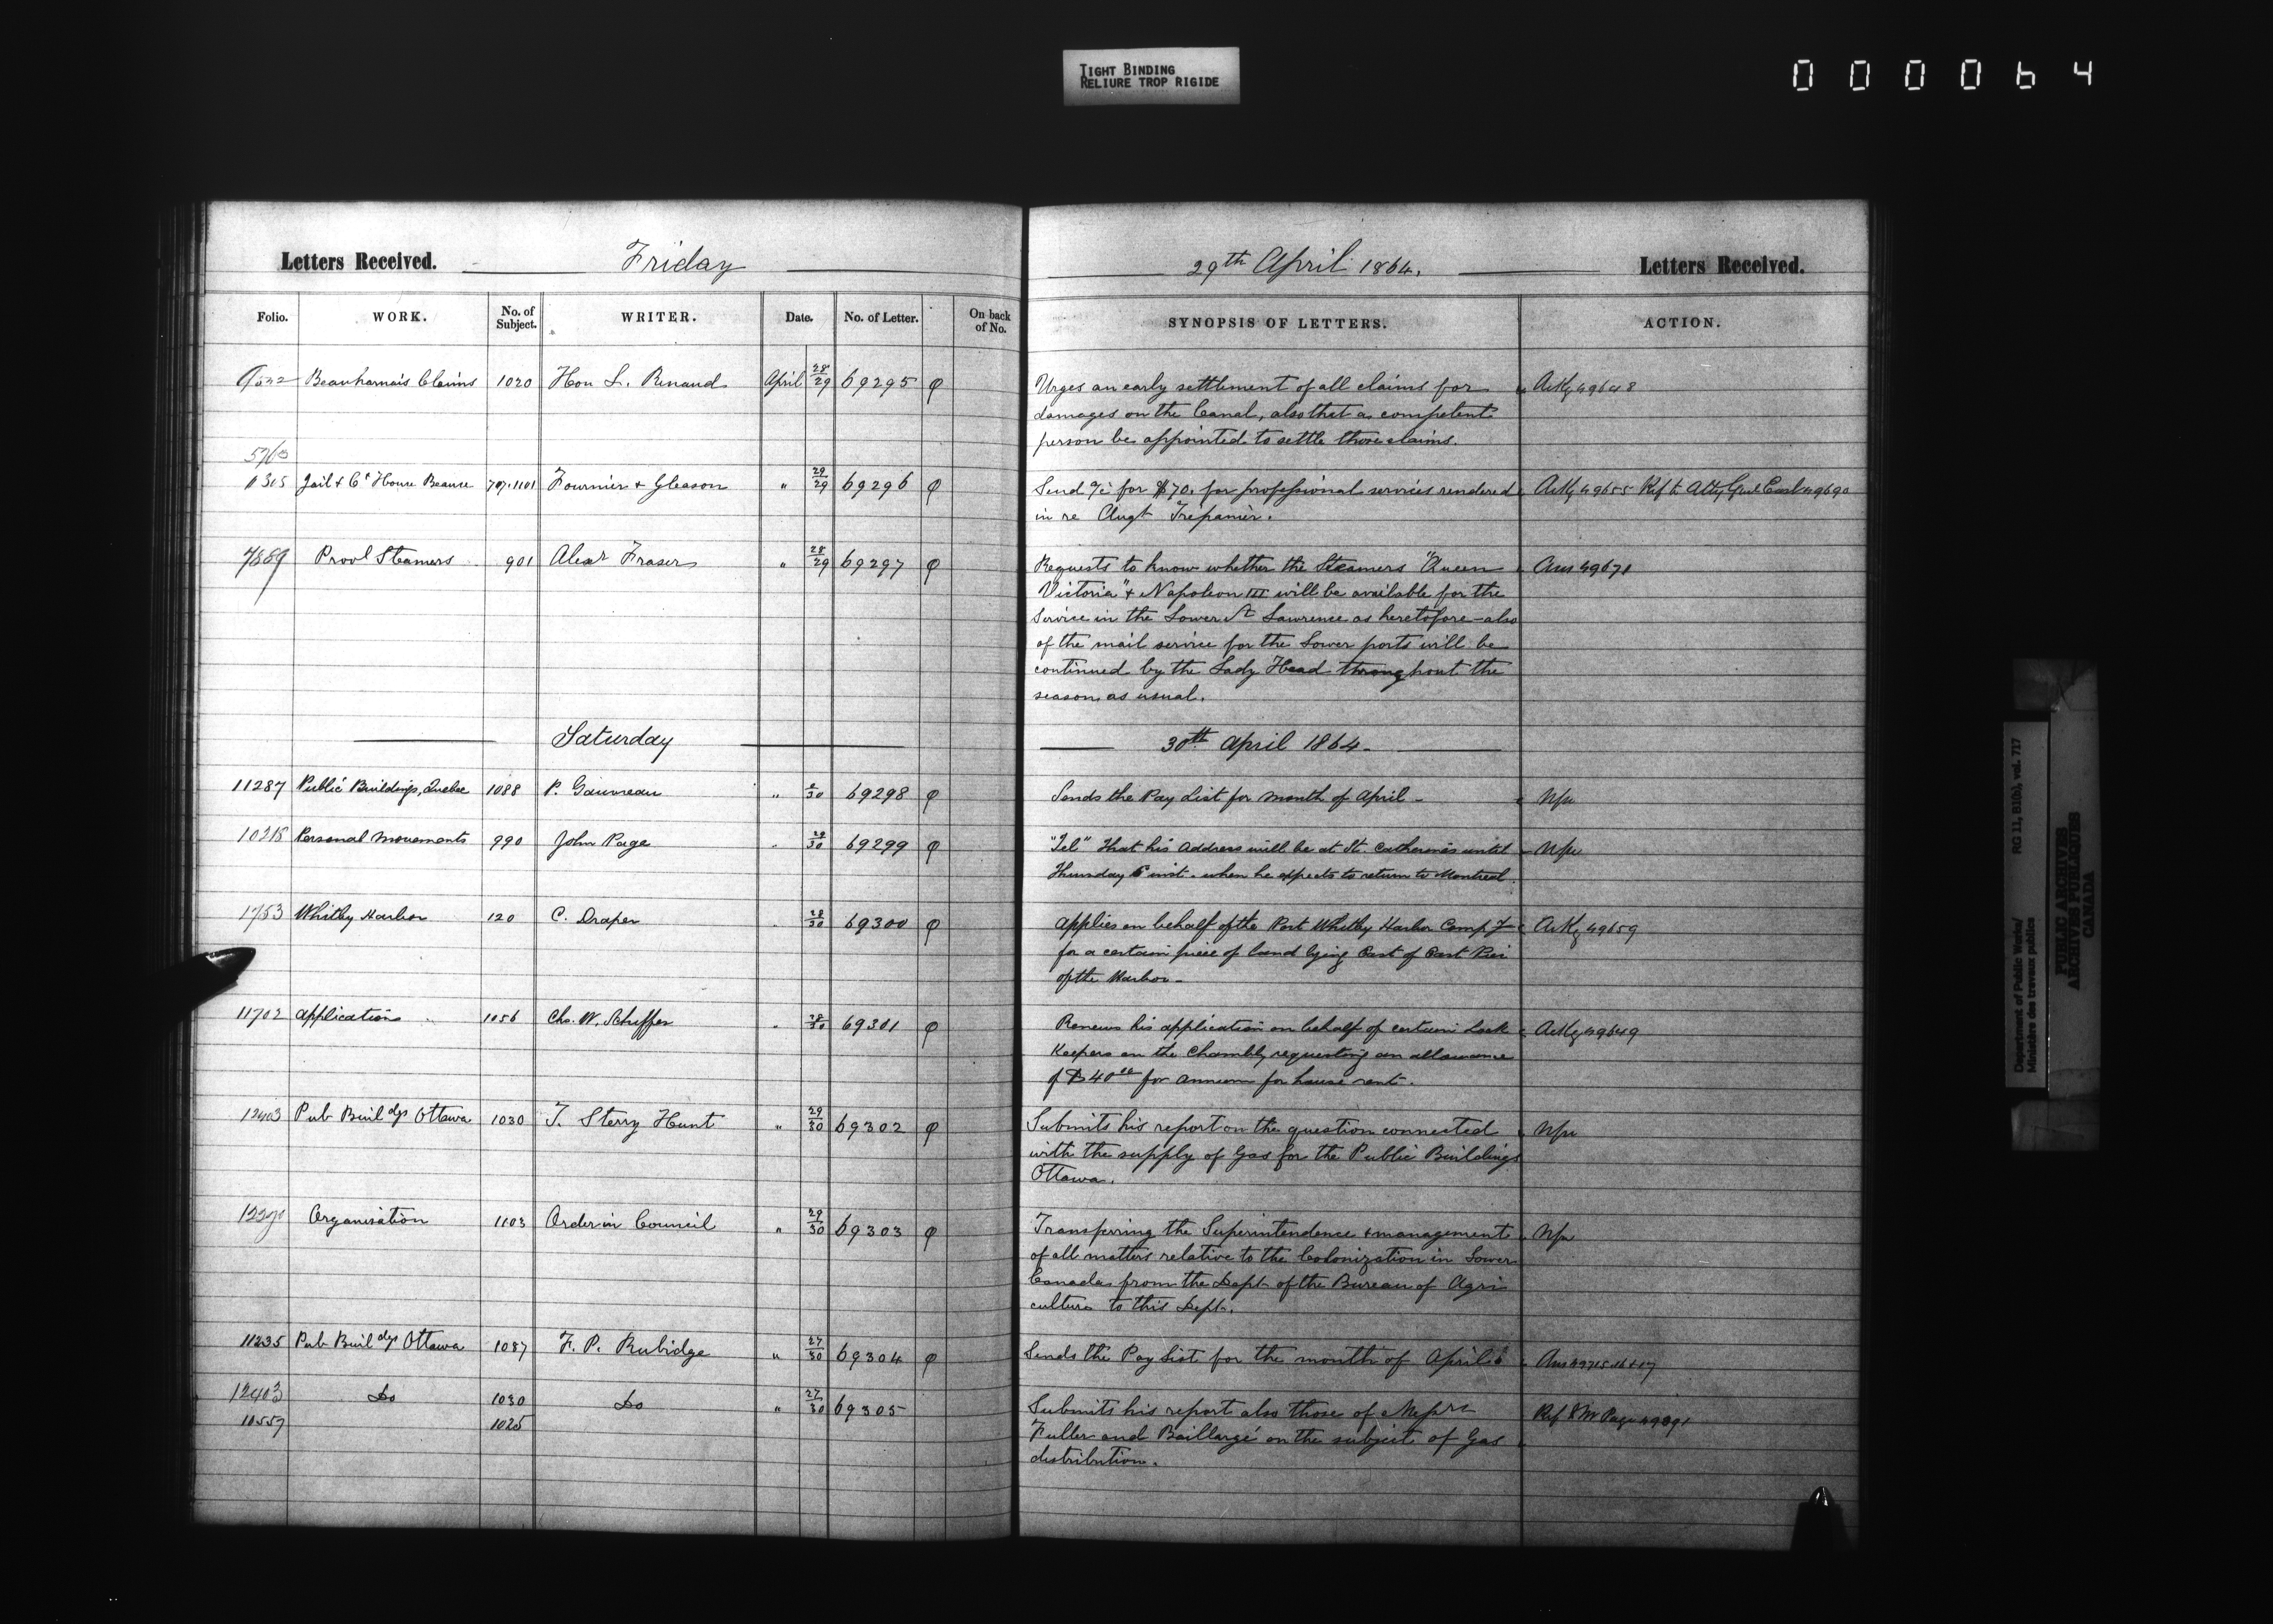 TIGHT BINDING
RELIURE TROP RIGIDE
000064
Letters Received. Friday 29th April 1864. Letters Received.
Folio. WORK. No. of Subject. WRITER. Date. No. of Letter. On back of No. SYNOPSIS OF LETTERS. ACTION.
Beauharnais Claims 1020 Hon L. Renaud April 28/29 69295 φ Urges an early settlement of all claims for Ackg 49648
damages on the Canal, also that a competent
person be appointed to settle those claims.
Jail & Ct House Beauce 707.1101 Fournier & Gleason " 29/29 69296 φ Send a/c for $70. for professional services rendered Ackg 49655 Ref to Atty Genl East 49690
in re Augt Trépanier.
7889 Provl Steamers 901 Alexr Fraser " 28/29 69297 φ Requests to know whether the Steamers "Queen Ans 49671
Victoria" & Napoleon III will be available for the
service in the Lower St Lawrence as heretofore - also
of the mail service for the Lower ports will be
continued by the Lady Head throughout the
season as usual.
Saturday 30th April 1864.
11287 Public Buildings, Quebec 1088 P. Gauvreau " 30 69298 φ Sends the Pay List for month of April -
10218 Personal movements 990 John Page 29/30 69299 φ "Tel" that his address will be at St. Catherines until
Thursday 5 inst. when he expects to return to Montreal.
1763 Whitby Harbor 120 C. Draper 28/30 69300 φ Applies on behalf of the Port Whitby Harbor Compy Ackg 49659
for a certain piece of land lying East of East Pier
of the Harbor -
11702 Application 1056 Chs. W. Scheffer 28/30 69301 φ Renews his application on behalf of certain Lock Ackg 49649
Keepers on the Chambly requesting an allowance
of $40 00 per annum for house rent.
12403 Pub Buildgs Ottawa 1030 T. Sterry Hunt " 29/30 69302 φ Submits his report on the question connected
with the supply of Gas for the Public Buildings
Ottawa.
Organisation 1103 Order in Council " 29/30 69303 φ Transferring the Superintendence & management
of all matters relative to the Colonization in Lower
Canada from the Dept of the Bureau of Agri
culture to this Dept.
11235 Pub Buildgs Ottawa 1087 F. P. Rubidge " 27/30 69304 φ Sends the Pay List for the month of April Ans 49715.16 & 17
12403 Do 1030 Do " 27/30 69305 Submits his report also those of Messrs Ref Mr Page
10557 1025 Fuller and Baillargé on the subject of Gas
distribution.
Department of Public Works/ RG 11, B1(b), vol. 717
Ministère des travaux publics
PUBLIC ARCHIVES
ARCHIVES PUBLIQUES
CANADA